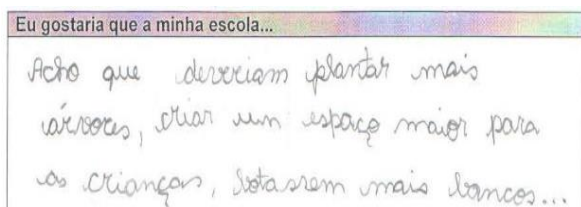 Eu gostaria que a minha escola...
Acho que deveriam plantar mais
árvores, criar um espaço maior para
as crianças, botassem mais bancos...